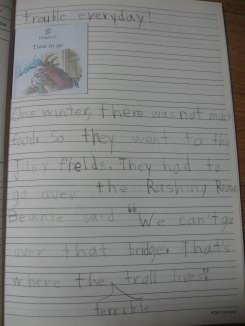 trouble everyday!
Chapter 2
Time to go
One winter, There was not much
food. So they went to the
Juicy fields. They had to
go over the Rushing River
Beanie said "We can't go
over that bridge. That's
where the troll lives."
terrible